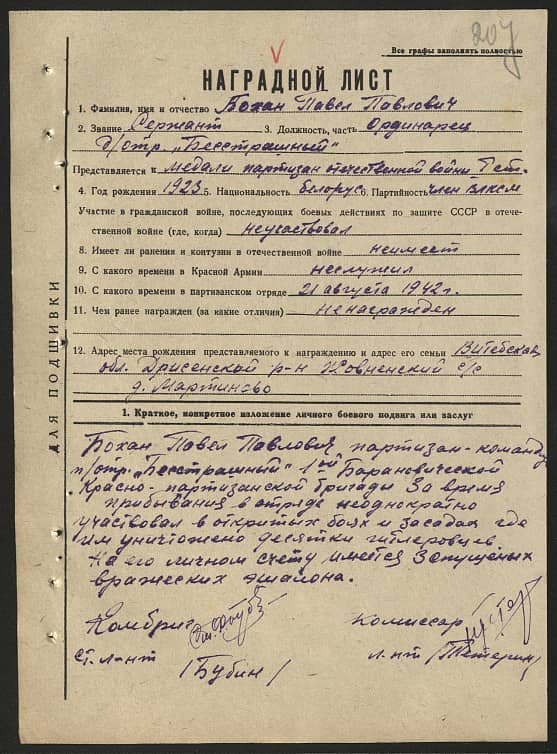 207
Все графы заполнять полностью
НАГРАДНОЙ ЛИСТ
1. Фамилия, имя и отчество Бохан Павел Павлович
2. Звание Сержант 3. Должность, часть Ординарец
п/отр. „Бесстрашный"
Представляется к медали партизан отечественной войны I ст.
4. Год рождения 1923 5. Национальность белорус 6. Партийность член ВЛКСМ
Участие в гражданской войне, последующих боевых действиях по защите СССР в отече-
ственной войне (где, когда) неучаствовал
8. Имеет ли ранения и контузии в отечественной войне неимеет
9. С какого времени в Красной Армии неслужил
10. С какого времени в партизанском отряде 21 августа 1942 г.
11. Чем ранее награжден (за какие отличия) ненагражден
12. Адрес места рождения представляемого к награждению и адрес его семьи Витебская
обл. Дрисенской р-н Жовненский с/с
д. Мартиново
ДЛЯ ПОДШИВКИ
1. Краткое, конкретное изложение личного боевого подвига или заслуг
Бохан Павел Павлович партизан-команд
п/отр. „Бесстрашный" 1ой Барановической
Красно-партизанской бригады За время
прибывания в отряде неоднократно
участвовал в открытых боях и засадах где
им уничтожено десятки гитлеровцев.
На его личном счету имеется 3 спущеных
вражеских эшалона.
Комбриг Комиссар
ст. л-нт /Бубин/ л-нт /Тетерин/